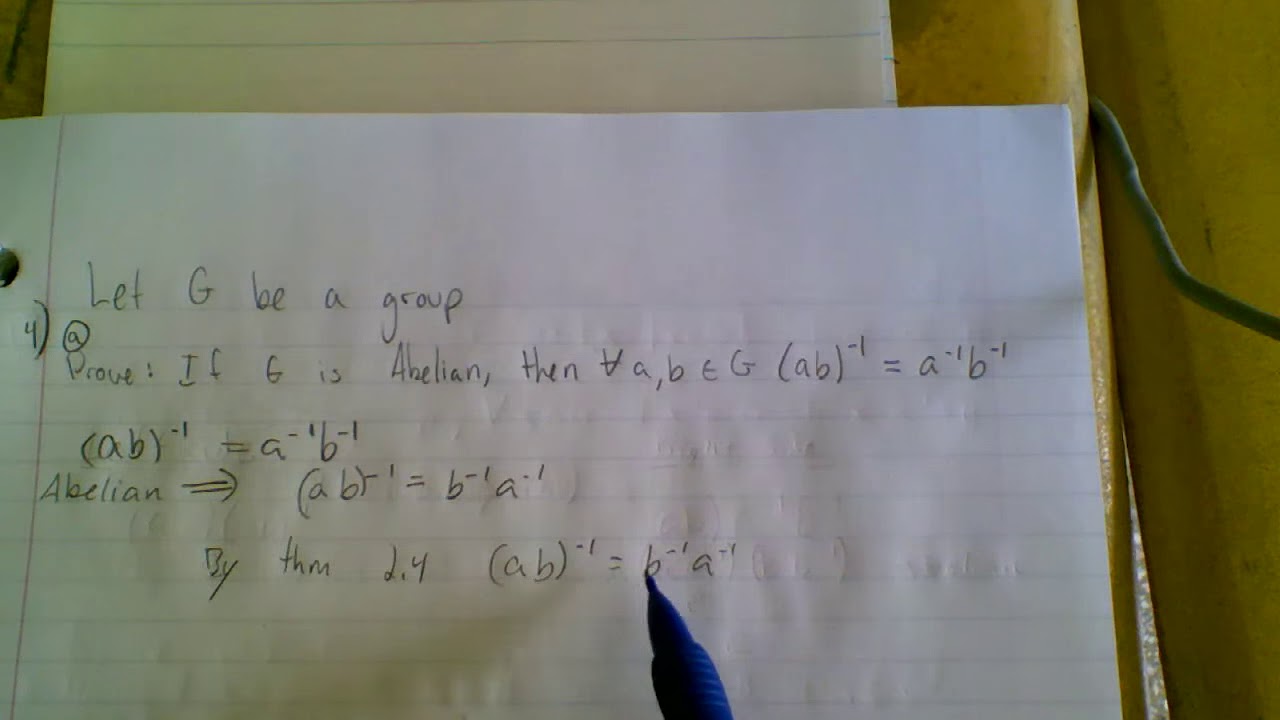 Let G be a group
4) ⓐ
Prove: If G is Abelian, then ∀ a,b ∈ G (ab)⁻¹ = a⁻¹b⁻¹
(ab)⁻¹ = a⁻¹b⁻¹
Abelian ⟹ (ab)⁻¹ = b⁻¹a⁻¹
By thm 2.4 (ab)⁻¹ = b⁻¹a⁻¹